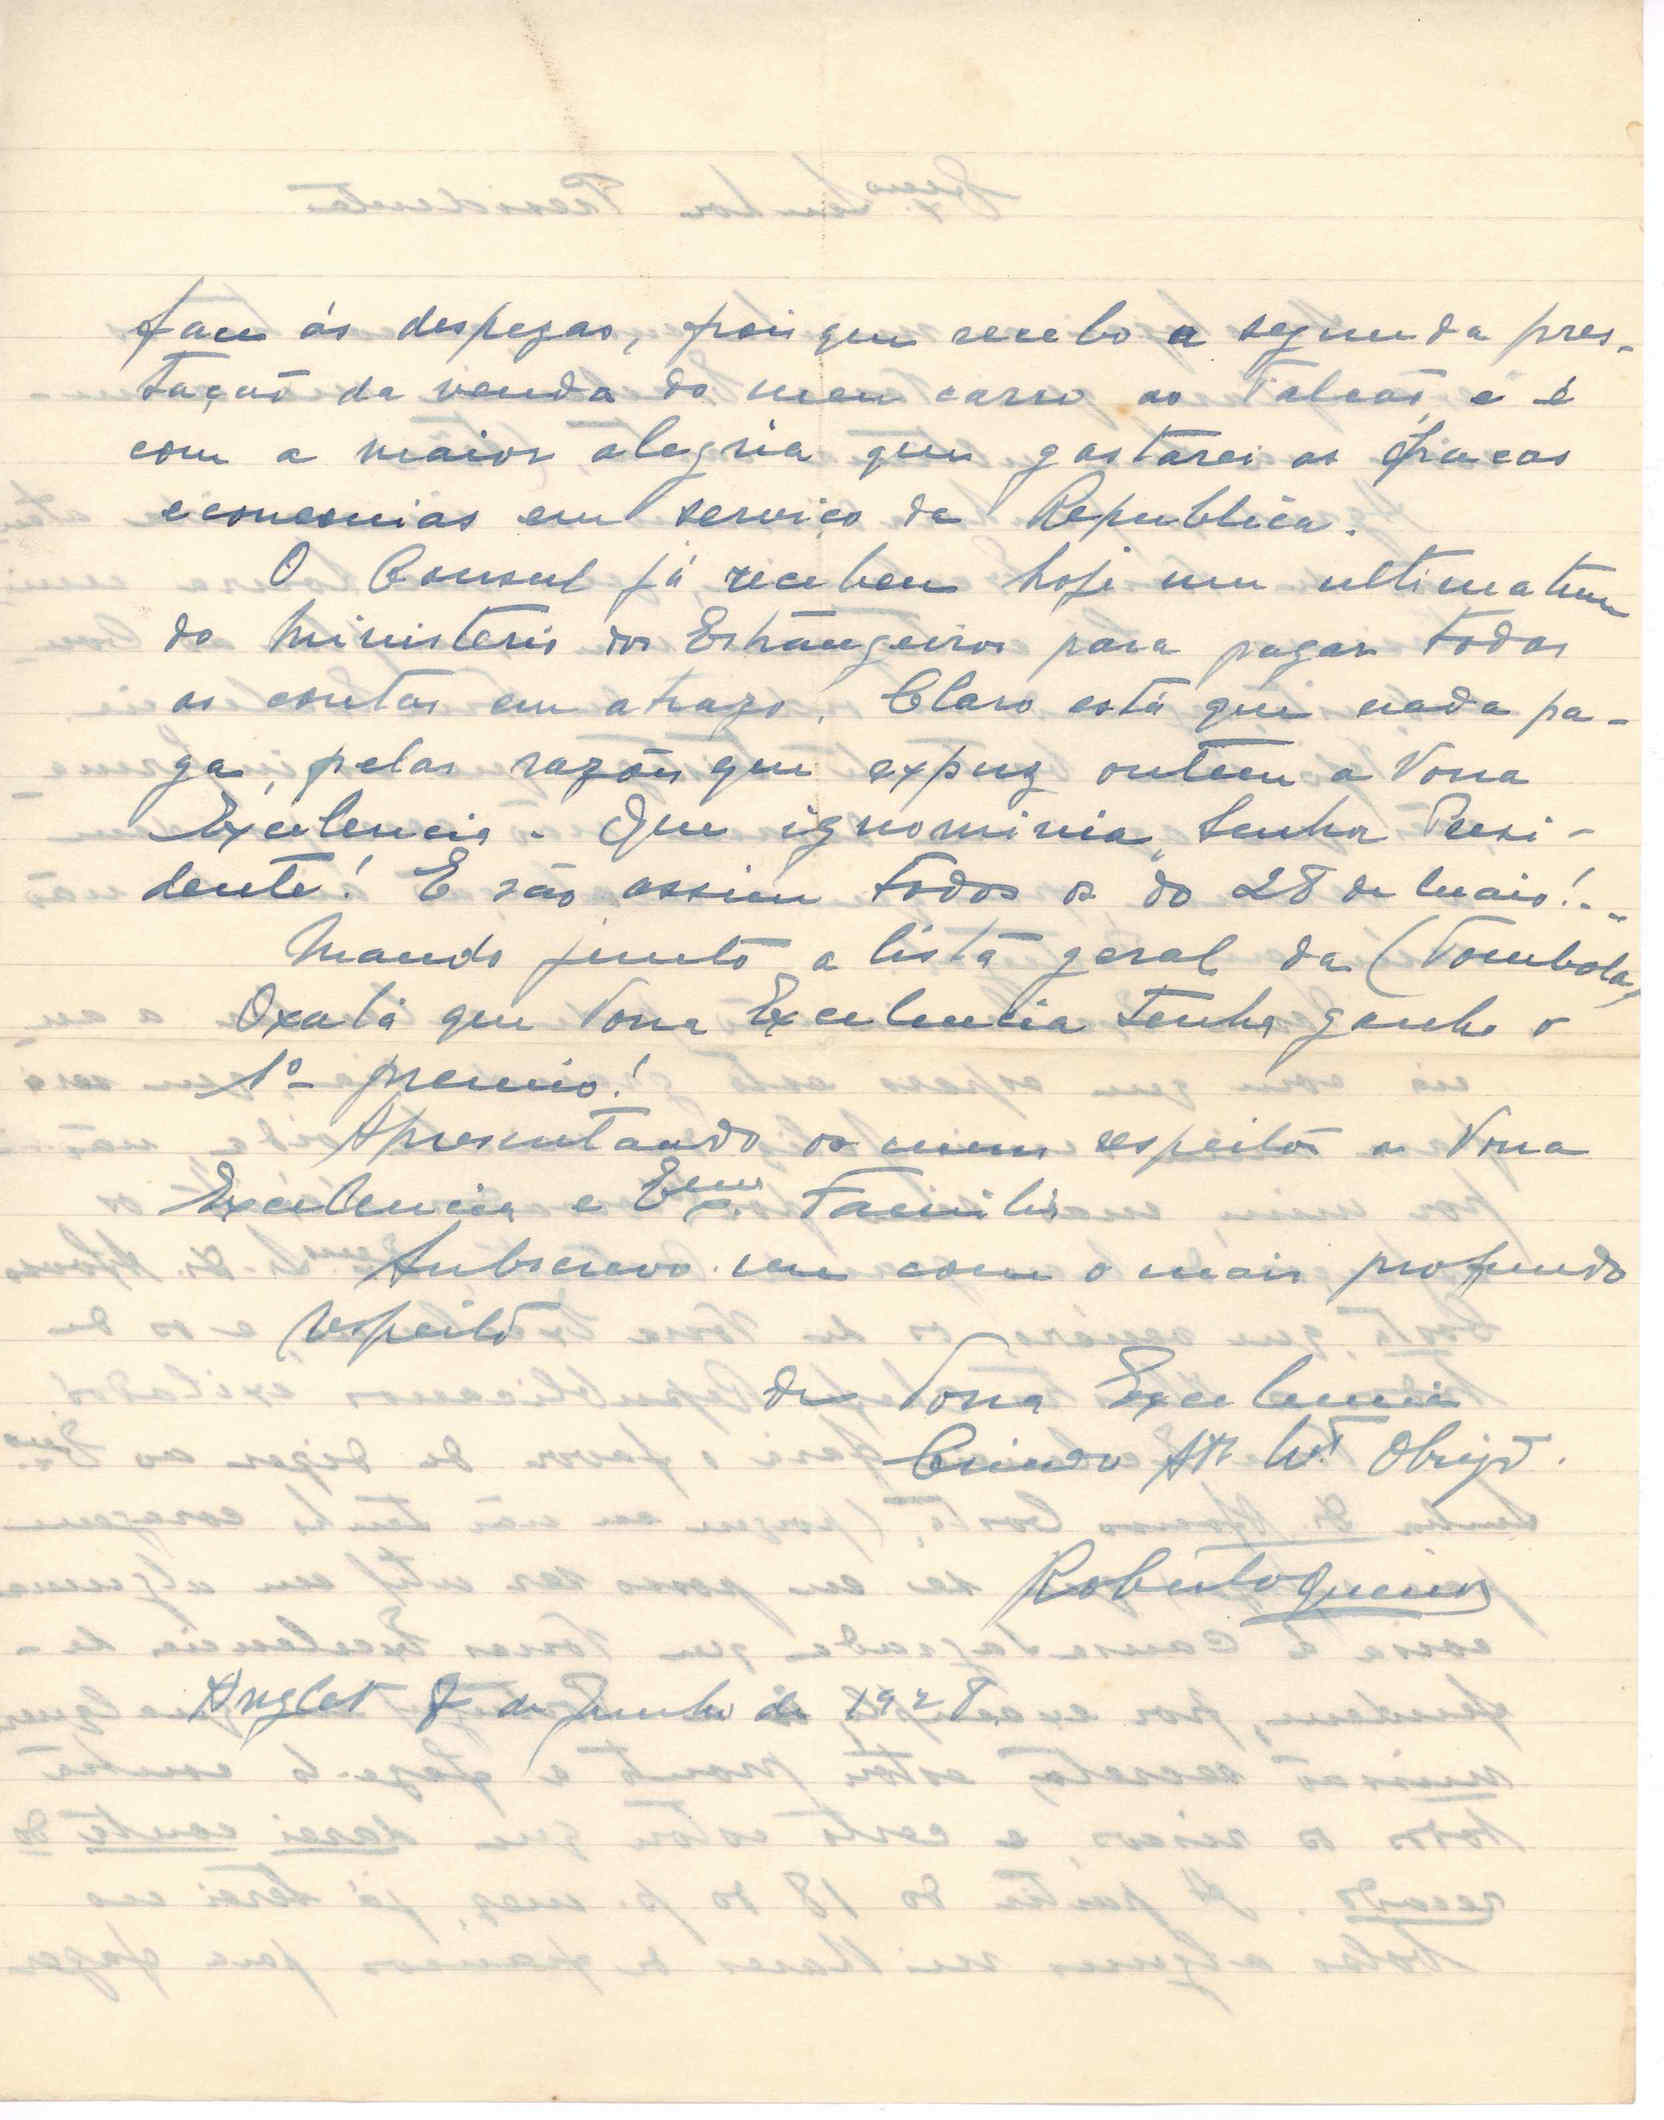 face ás despezas, pois que recebo a segunda pres-
tação da venda do meu carro ao Falcão, e é
com a maior alegria que gastarei as fracas
economias em serviço da Republica.
O Consul já recebeu hoje um ultimatum
do Ministerio dos Estrangeiros para pagar todas
as contas em atrazo. Claro está que nada pa-
ga, pelas razões que expuz ontem a Vossa
Excelencia. Que ignominia, Senhor Presi-
dente! E são assim todos os do 28 de Maio!..
Mando junto a lista geral da (Tombola)
Oxalá que Vossa Excelencia tenha ganho o
1º premio!
Apresentando os meus respeitos a Vossa
Excelencia e Exma. Familia
Subscrevo-me com o mais profundo
respeito
de Vossa Excelencia
Criado Attº Mtº Obrigdº.
Roberto Queiroz
Anglet 8 de Junho de 1928